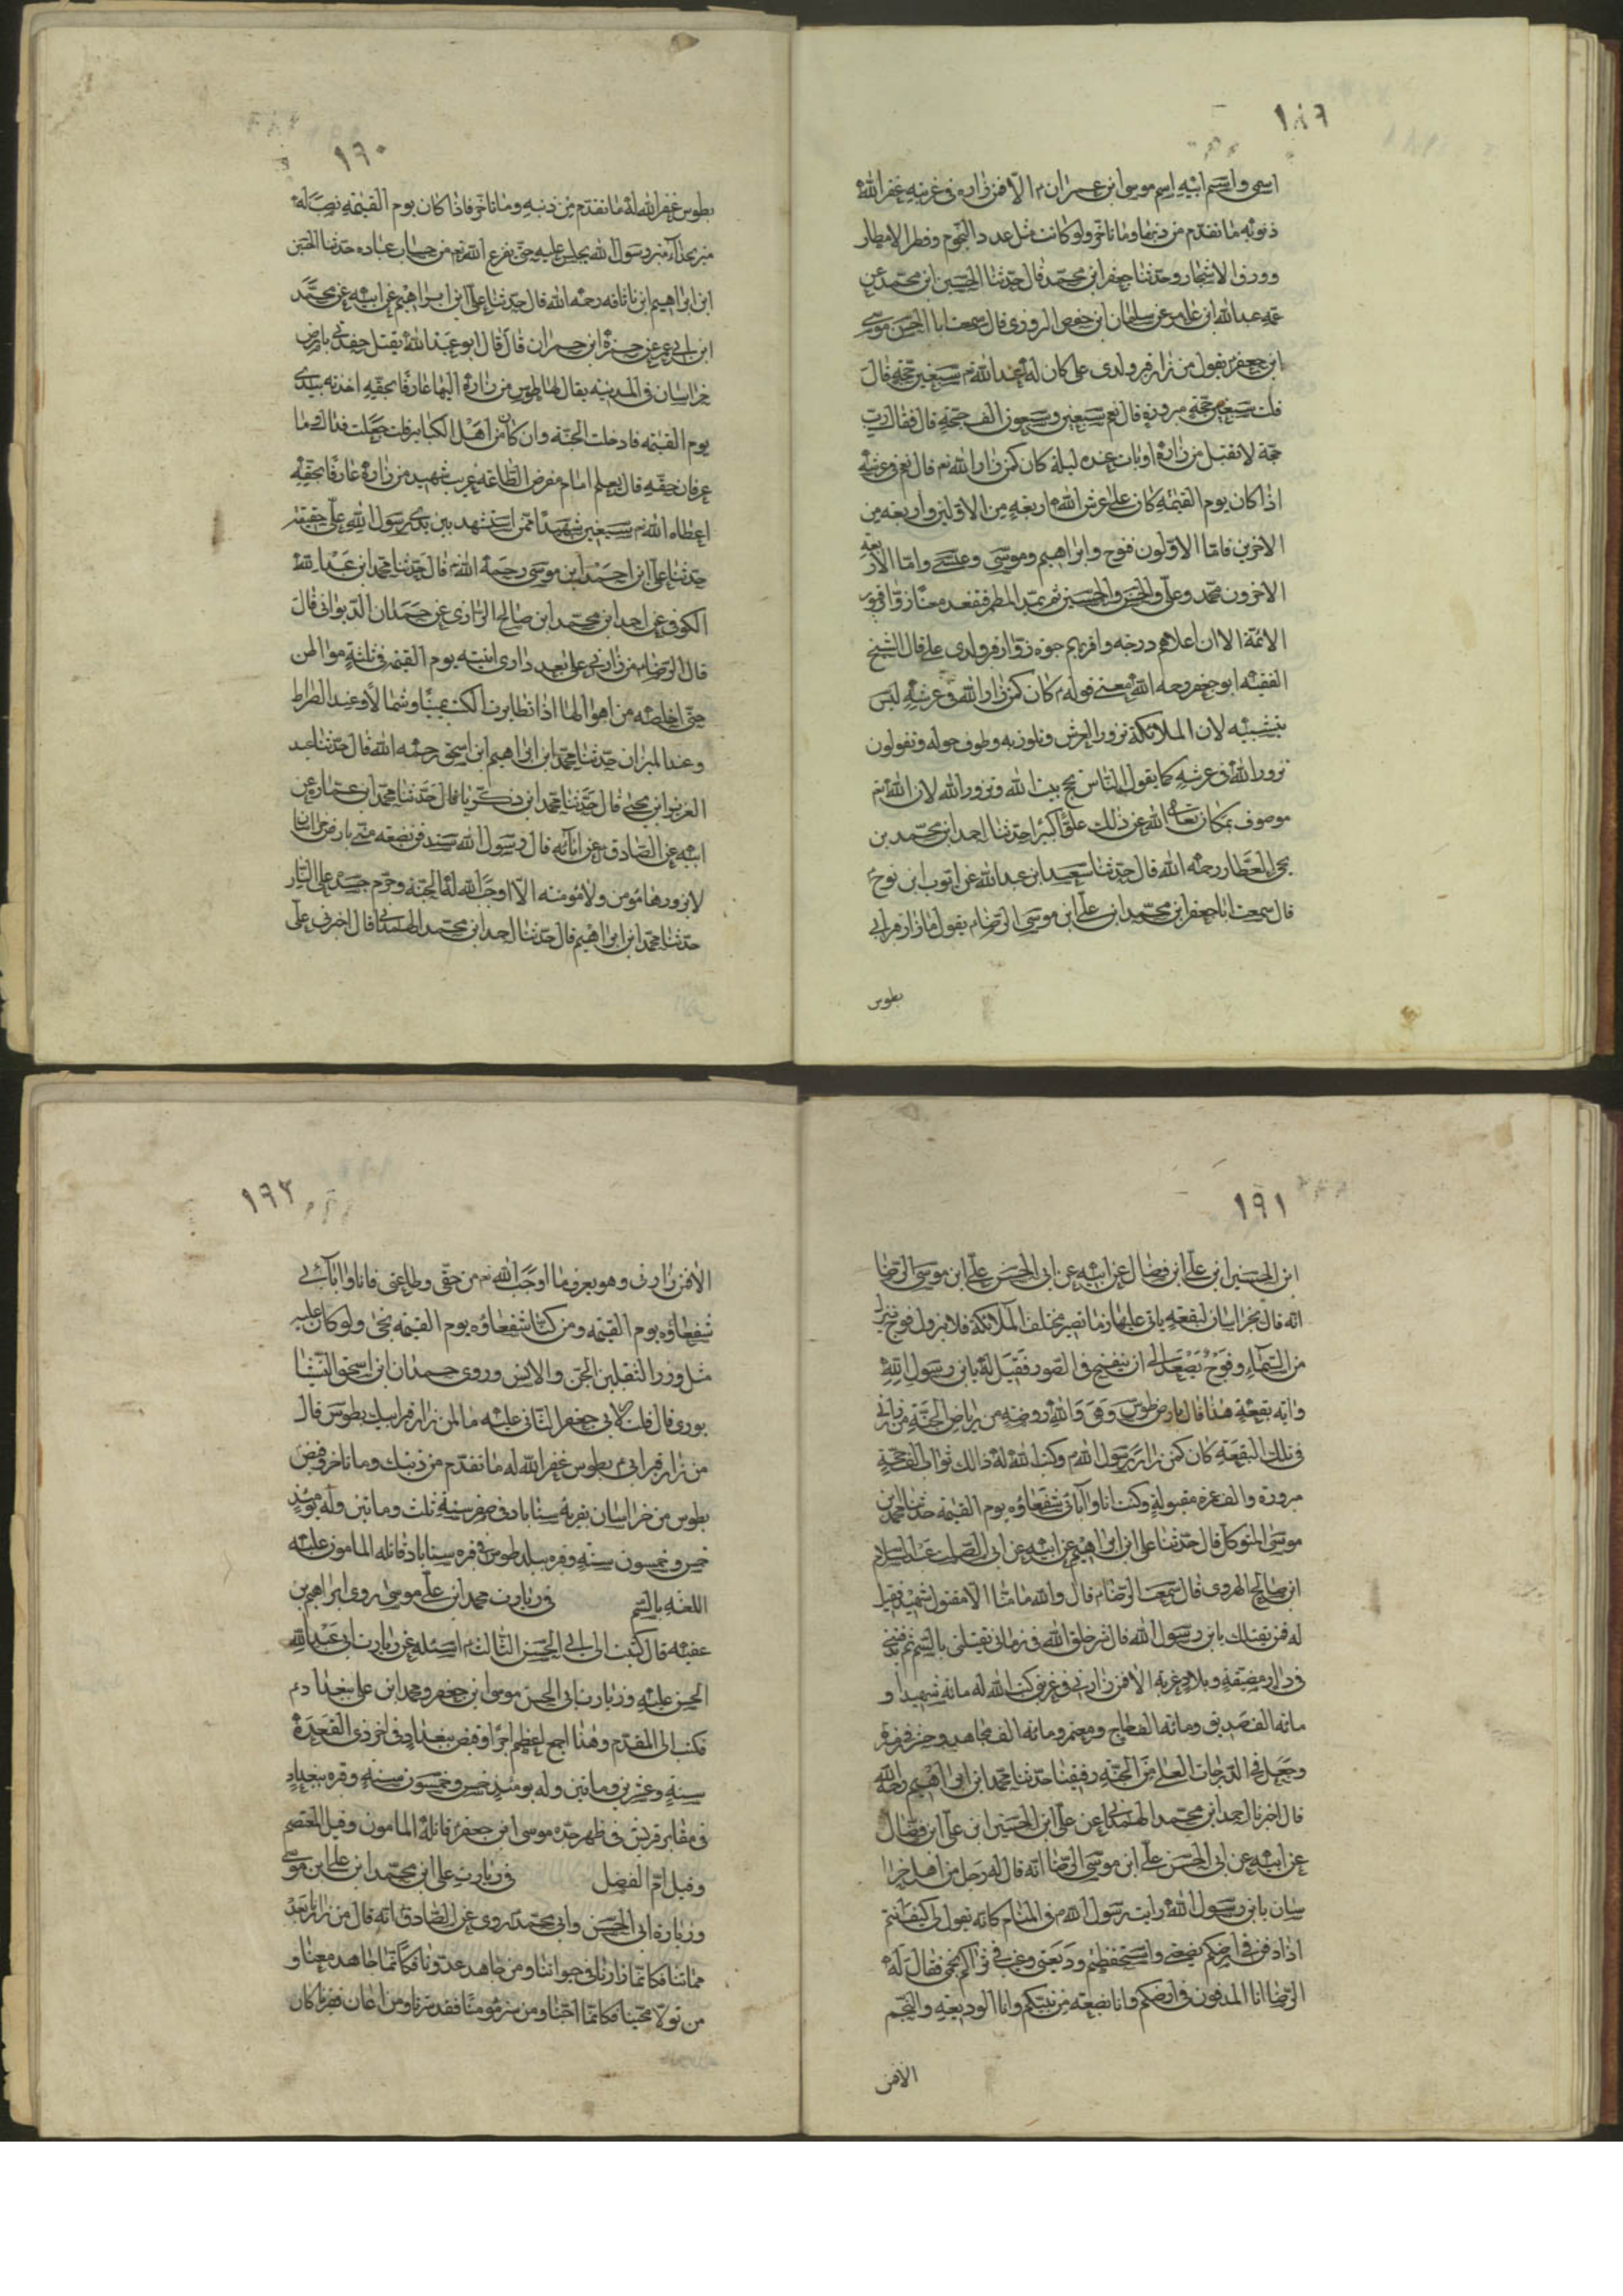 ١٨٩
اسمي واسم ابيه اسم موسى ابن عمران م الا فمن زاره في غربته غفر الله
ذنوبه ما تقدم من ذنبها وما تاخر ولو كانت مثل عدد النجوم وقطر الامطار
وورق الاشجار وحدثنا جعفر ابن محمد قال حدثنا الحسين ابن محمد عن
عمه عبد الله ابن عامر عن سليمان ابن حفص المروزي قال سمعت ابا الحسن موسى
ابن جعفر يقول من زار قبر ولدي علي كان له عند الله تم سبعين حجة قال
قلت سبعين حجة مبرورة قال نعم سبعين وسبعون الف حجة قال فقال رب
حجة لا تقبل من زاره او بات عنده ليلة كان كمن زار الله تم قال نعم في عرشه
اذا كان يوم القيمة كان على عرش الله اربعه من الاولين واربعه من
الاخرين فاما الاولون فنوح وابراهيم وموسى وعيسى واما الاربعة
الاخرون محمد وعلي والحسن والحسين ثم يمد المطمر فقعد معنا زوار قبور
الائمة الا ان اعلاهم درجه واقربهم حبوه زوار قبر ولدي علي قال الشيخ
الفقيه ابو جعفر رحمه الله معنى قوله م كان كمن زار الله في عرشه ليس
بتشبيه لان الملائكة تزور العرش وتلوذ به وتطوف حوله وتقولون
نزور الله في عرشه كما يقول الناس نحج بيت الله ونزور الله لان الله تم
موصوف بمكان تعالى الله عن ذلك علوا كبيرا حدثنا احمد ابن محمد بن
يحيى العطار رحمه الله قال حدثنا سعيد ابن عبد الله عن ايوب ابن نوح
قال سمعت ابا جعفر ابن محمد ابن علي ابن موسى الرضا م يقول ما زار قبر ابي
بطوس
١٩٠
بطوس غفر الله له ما تقدم من ذنبه وما تاخر فاذا كان يوم القيمة نصب له
منبر بحذاء منبر رسول الله يجلس عليه حتى يفرغ الله تم من حساب عباده حدثنا الحسين
ابن ابراهيم ابن ناتانه رحمه الله قال حدثنا علي ابن ابراهيم عن ابيه عن محمد
ابن ابي عمير عن حمزة ابن حمران قال قال ابو عبد الله يقتل حفدتي بارض
خراسان في المدينه يقال لها طوس من زاره اليها عارفا بحقه اخذته بيدي
يوم القيمه فادخلت الجنة وان كان من اهل الكبائر قلت جعلت فداك وما
عرفان حقه قال يعلم امام مفرض الطاعه غريب شهيد من زاره عارفا بحقه
اعطاه الله تم سبعين شهيدا ممن استشهد بين يدي رسول الله على حقيقة
حدثنا علي ابن احمد ابن موسى رحمه الله تم قال حدثنا محمد ابن عبد الله
الكوفي عن احمد ابن محمد ابن صالح الرازي عن حمدان الديواني قال
قال الرضا م من زارني على بعد داري اتيته يوم القيمة في ثلثة مواطن
حتى اخلصه من اهوالها اذا تطايرت الكتب يمينا وشمالا وعند الصراط
وعند الميزان حدثنا محمد ابن ابراهيم ابن اسحق رحمه الله قال حدثنا عبد
العزيز ابن يحيى قال حدثنا محمد ابن زكريا قال حدثنا محمد ابن عماره عن
ابيه عن الصادق عن ابائه قال رسول الله ستدفن بضعه مني بارض خراسان
لا يزورها مؤمن ولا مؤمنه الا اوجب الله له الجنة وحرم جسده على النار
حدثنا محمد ابن ابراهيم قال حدثنا احمد ابن محمد الهمداني قال اخرني علي
١٩١
ابن الحسين ابن علي ابن فضال عن ابيه عن ابي الحسن علي ابن موسى الرضا
انه قال بخراسان لبقعه ياتي عليها زمان تصير مختلف الملائكة فلا يزول فوج ينزل
من السماء وفوج يصعد الى ان ينفخ في الصور فقيل له يابن رسول الله
وايه بقعة هذا قال بارض طوس وهي والله روضة من رياض الجنة من زارني
في تلك البقعة كان كمن زار رسول الله م وكتب الله له ذالك ثواب الف حجة
مبرورة والف عمرة مقبولة وكنت انا وآبائي شفعاؤه يوم القيمة حدثنا محمد ابن
موسى المتوكل قال حدثنا علي ابن ابراهيم عن ابيه عن ابي الصلت عبد السلام
ابن صالح الهروي قال سمعت الرضا م قال والله ما منا الا مقتول شهيد فقيل
له فمن يقتلك يابن رسول الله قال شر خلق الله في زماني يقتلني بالسم ثم يدفنني
في دار مضيقه وبلاد غربة الا فمن زارني في غربتي كتب الله له مائة شهيد و
مائه الف صديق ومائه الف حاج ومعتمر ومائه الف مجاهد وحشر في زمرتنا
وجعل في الدرجات العلى من الجنة رفيقنا حدثنا محمد ابن ابراهيم رحمه الله
قال اخرنا احمد ابن محمد الهمداني عن علي ابن الحسين ابن علي ابن فضال
عن ابيه عن ابي الحسن علي ابن موسى الرضا انه قال له رجل من اهل خرا
سان يابن رسول الله رايت رسول الله م في المنام كانه يقول لي كيف انتم
اذا دفن في ارضكم بضعتي واستحفظتم وديعتي وغيب في ثراكم نجمي فقال له
الرضا انا المدفون في ارضكم وانا بضعه من نبيكم وانا الوديعه والنجم
الا فمن
١٩٢
الا فمن زارني وهو يعرف ما اوجب الله تم من حقي وطاعتي فانا وابائي
شفعاؤه يوم القيمه ومن كنا شفعاؤه يوم القيمه نجى ولو كان عليه
مثل وزر الثقلين الجن والانس وروي حمدان ابن اسحق النيشا
بوري قال قلت لابي جعفر الثاني عليه ما لمن زار قبر ابيك بطوس قال
من زار قبر ابي م بطوس غفر الله له ما تقدم من ذنبك وما تاخر وقبض
بطوس من خراسان بقرية سناباد في صفر سنة ثلث ومائتين وله يومئذ
خمس وخمسون سنة وقبره ببلد طوس في قره سناباد قاتله المامون عليه
اللغنه بالسم في زيارت محمد ابن علي موسى روي ابراهيم بن
عقبه قال كتبت الى ابي الحسن الثالث م اسئله عن زيارت ابي عبد الله
الحسين عليه وزيارت ابي الحسن موسى ابن جعفر ومحمد ابن علي ببغداد م
فكتب الي المقدم وهذا اجمع اعظم اجرا وقبض ببغداد في اخر ذي القعدة
سنة وعشرين ومائتين وله يومئذ خمس وخمسون سنة وقبره ببغداد
في مقابر قريش في ظهر جده موسى ابن جعفر قاتله المامون وقيل المعتصم
وقيل ام الفضل في زيارت علي ابن محمد ابن علي ابن موسى
وزيارة ابي الحسن وابي محمد روي عن الصادق انه قال من زارنا بعد
مماتنا فكانما زارنا في حيواتنا ومن جاهد عدونا فكانما جاهد معنا و
من تولا محبنا فكانما احبنا ومن سر مؤمنا فقد سرنا ومن اعان فقيرنا كان